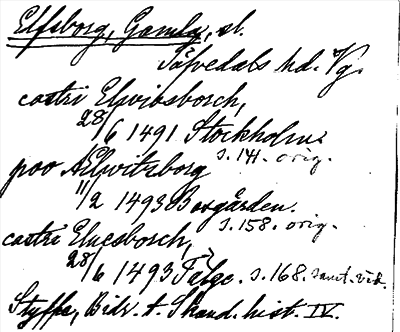 Elfsborg, Gamla, sl.
Säfvedals hd. Vg.
castri Elswiibsborch,
28/6 1491 Stockholm.
s. 141. orig.
poo AElwitsborg
11/2 1493 Borgården.
s. 158. orig.
castri Eluesborch,
28/6 1493 Tælge. s. 168. samt. vid.
Styffe, Bidr. t. Skand. hist. IV.